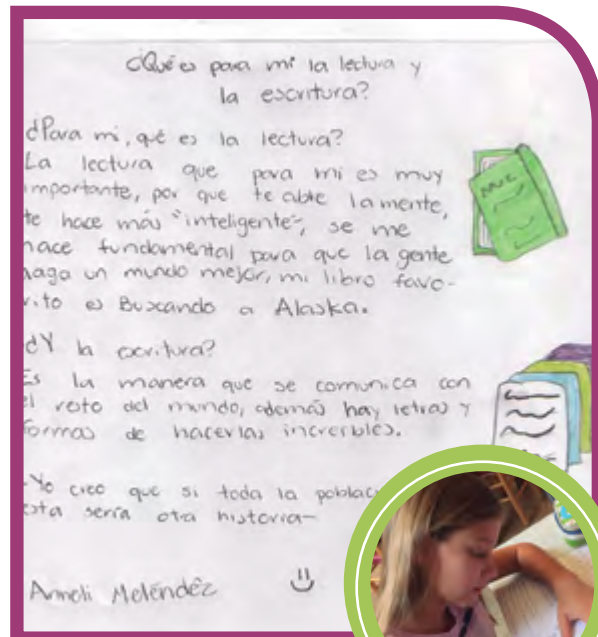 ¿Qué es para mí la lectura y
la escritura?
¿Para mi, qué es la lectura?
La lectura que para mi es muy
importante, por que te abre la mente,
te hace más "inteligente", se me
hace fundamental para que la gente
haga un mundo mejor, mi libro favo-
rito es Buscando a Alaska.
¿Y la escritura?
Es la manera que se comunica con
el resto del mundo, además hay letras y
formas de hacerlas increíbles.
-Yo creo que si toda la poblac
esta sería otra historia-
Anneli Meléndez